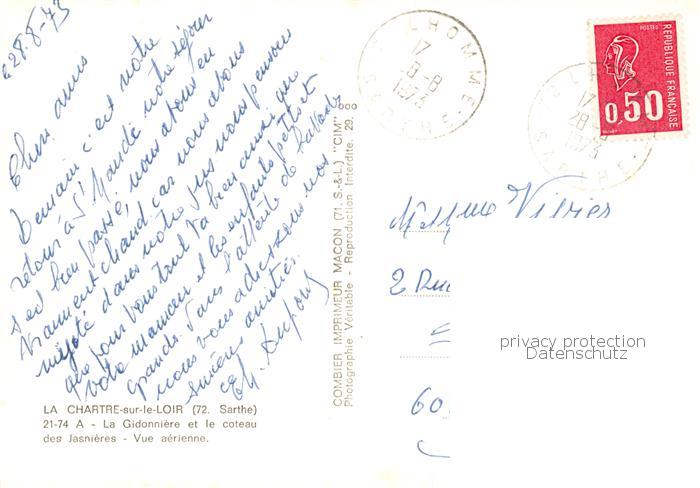 28-8-73
Chers amis
Demain c'est notre
retour à St Mandé, notre séjour
s'est bien passé, nous avons eu
vraiment chaud, car nous avons
dans notre jus nous pensons
que pour vous tout va bien ainsi que
votre maman et les enfants petits et
grands. Dans l'attente de
nous vous adressons nos
sincères amitiés.
Ch. Dupont
LA CHARTRE-sur-le-LOIR (72. Sarthe)
21-74 A - La Gidonnière et le coteau
des Jasnières - Vue aérienne.
COMBIER IMPRIMEUR MACON (71. S.-&-L.) "CIM"
Photographie Véritable - Reproduction Interdite. 29.
LHOMME
17
8-8
1973
SARTHE
POSTES
REPUBLIQUE FRANÇAISE
0,50
LHOMME
17
28-8
1973
SARTHE
M. et Mme Vivier
2 Rue
60
privacy protection
Datenschutz